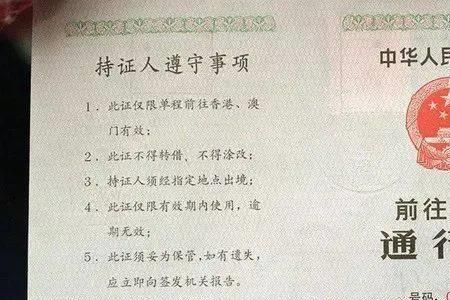 持证人遵守事项
1. 此证仅限单程前往香港、澳
门有效;
2. 此证不得转借，不得涂改;
3. 持证人须经指定地点出境;
4. 此证仅限有效期内使用，逾
期无效;
5. 此证须妥为保管，如有遗失，
应立即向签发机关报告。
中华人民
前往
通行
号码: